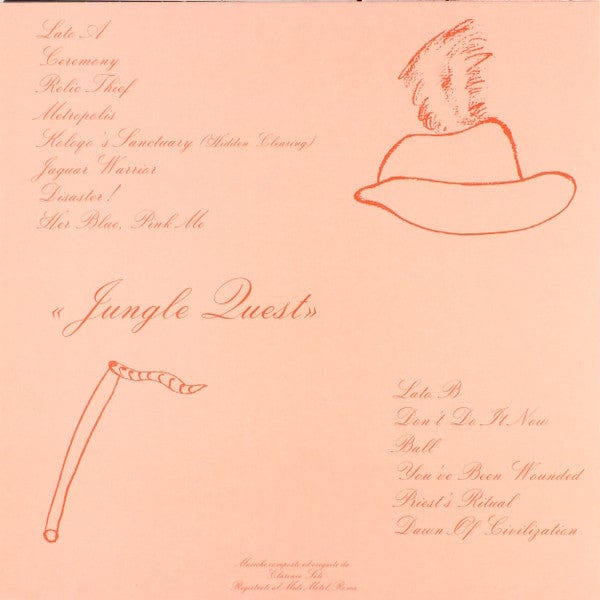 Lato A
Ceremony
Relic Thief
Metropolis
Kologo's Sanctuary (Hidden Clearing)
Jaguar Warrior
Disaster!
Her Blue, Pink Me
« Jungle Quest»
Lato B
Don't Do It Now
Ball
You've Been Wounded
Priest's Ritual
Dawn Of Civilization
Musiche composte ed eseguite da
Clarence
Registrato al Motel, Roma